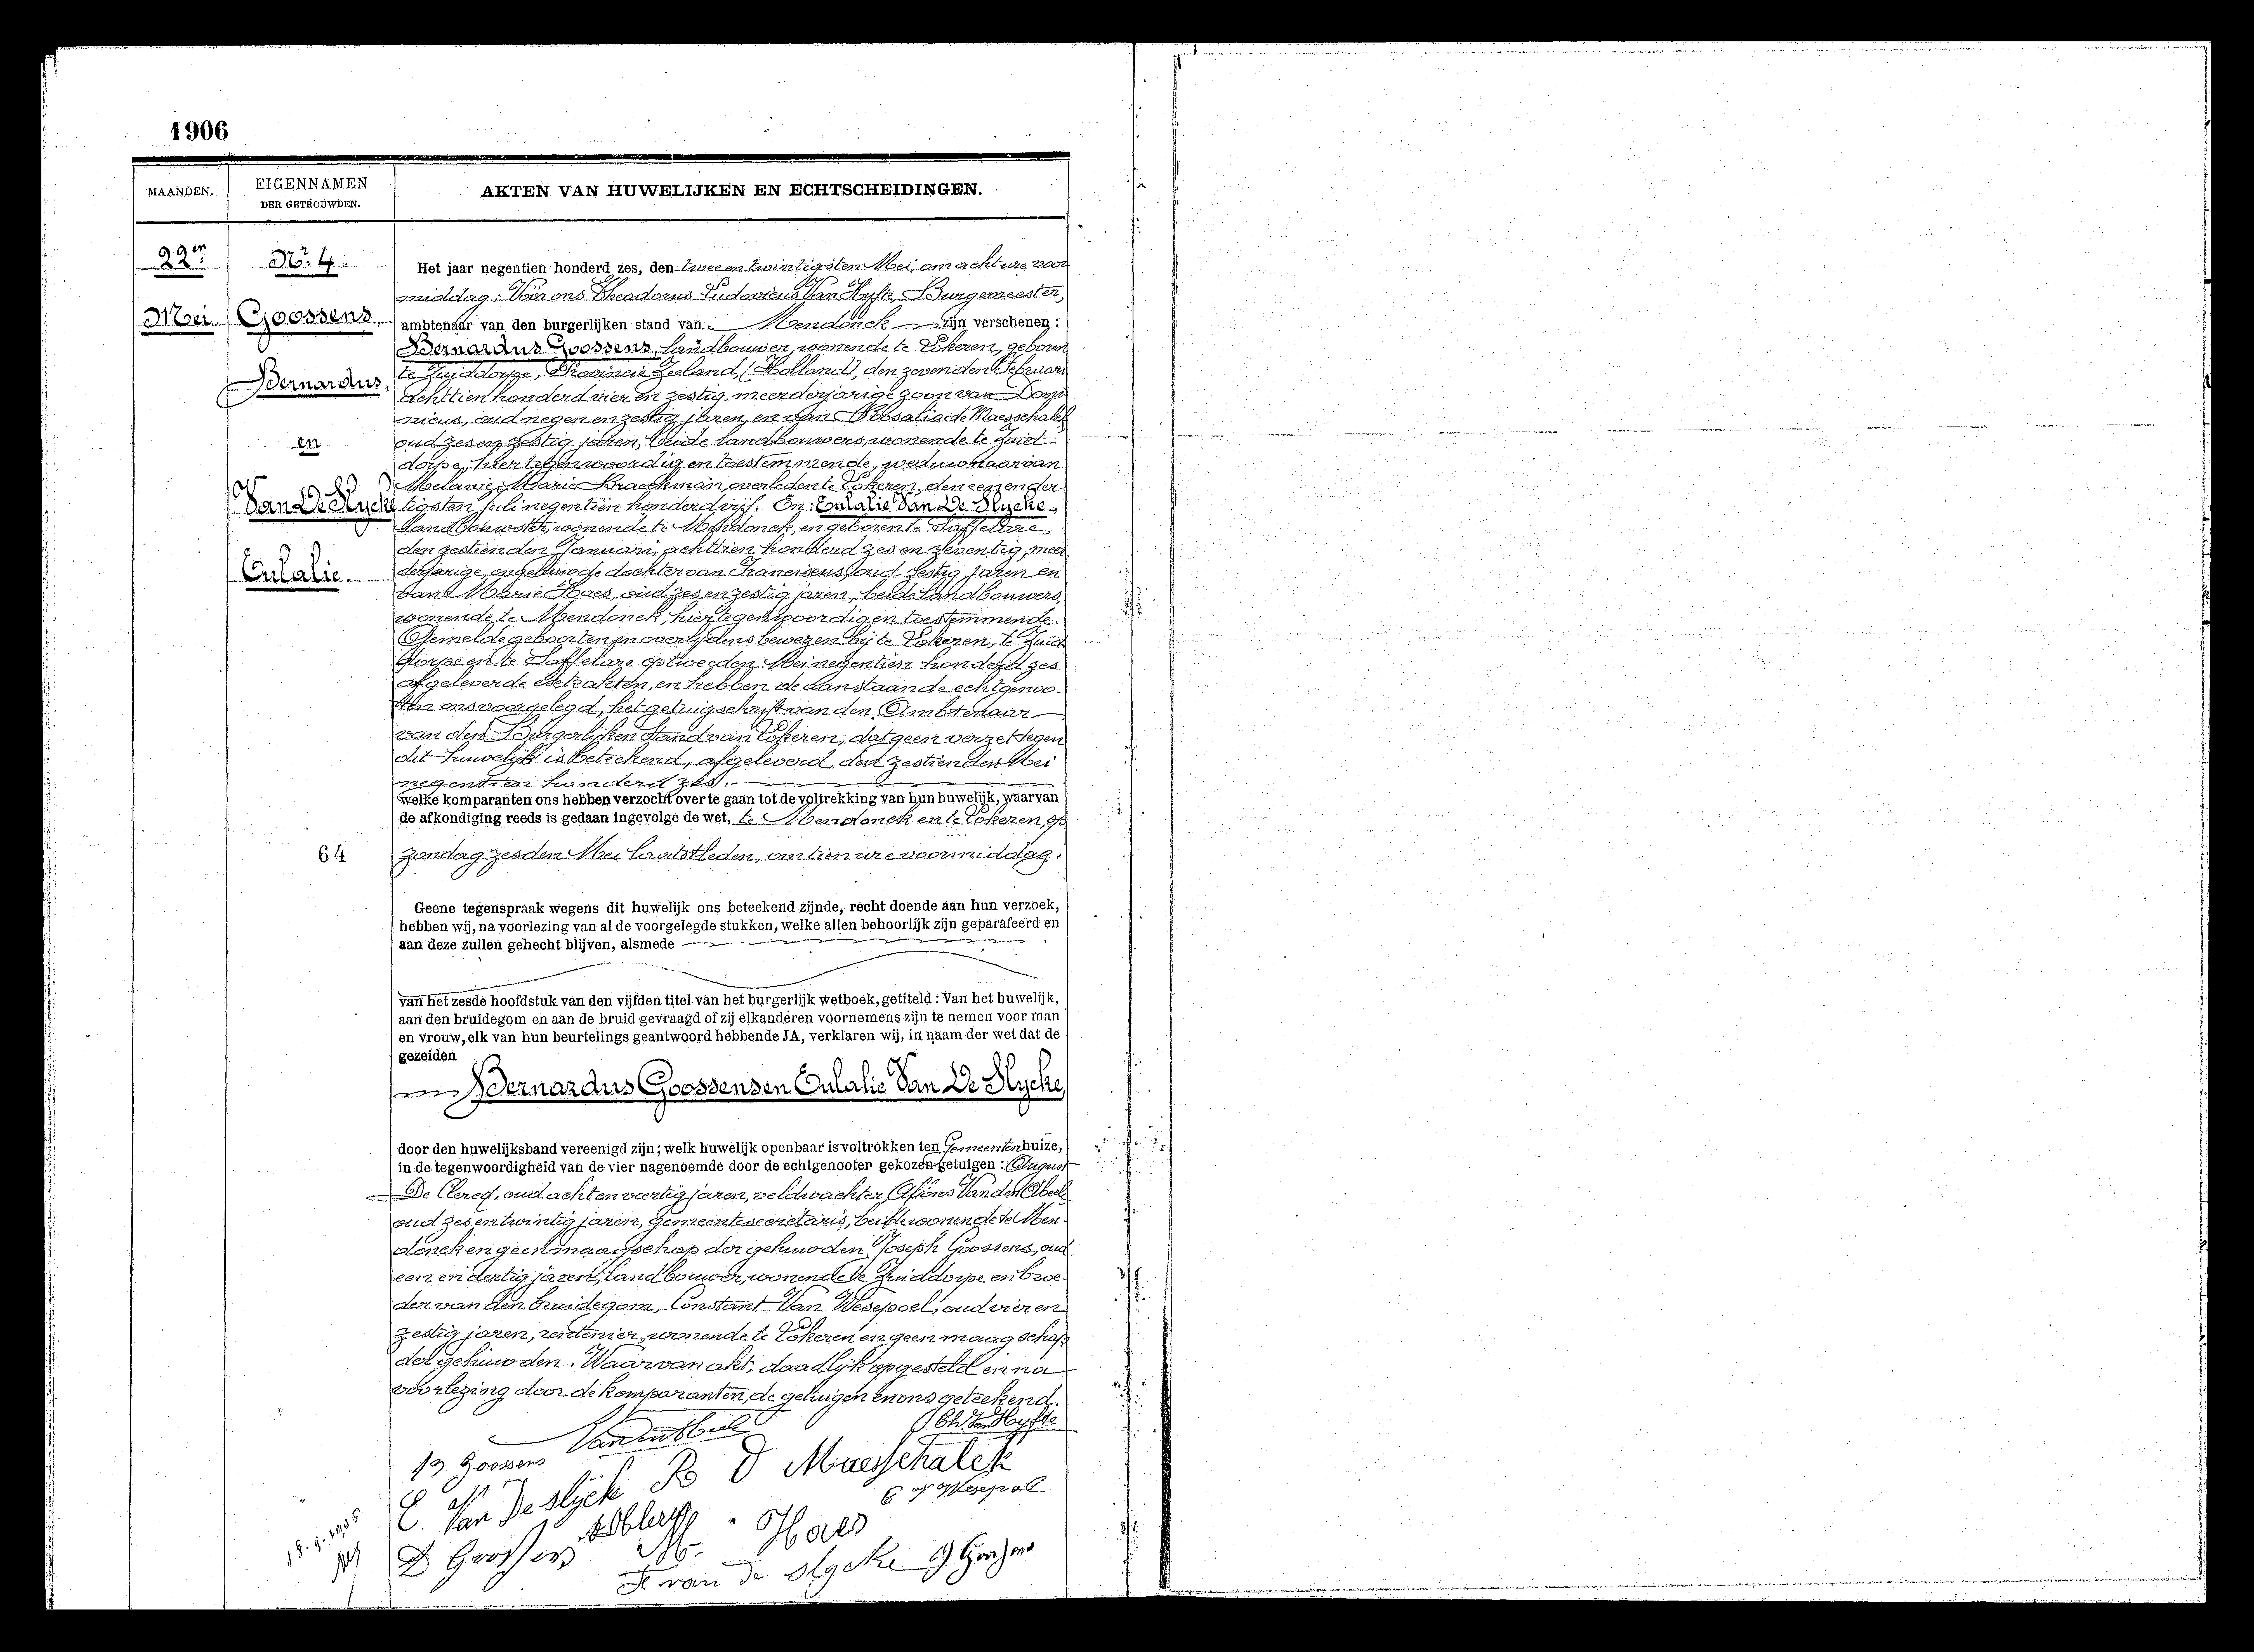 1906
MAANDEN.
EIGENNAMEN
DER GETROUWDEN.
AKTEN VAN HUWELIJKEN EN ECHTSCHEIDINGEN.
22en
Mei
Nr. 4.
Goossens
Bernardus,
en
Van De Slycke
Eulalie
64
Het jaar negentien honderd zes, den twee en twintigsten Mei, om acht ure voor
middag: Voor ons Theodorus Ludovicus Van Hyfte, Burgemeester,
ambtenaar van den burgerlijken stand van Mendonck zijn verschenen:
Bernardus Goossens, landbouwer, wonende te Lokeren, geboren
te Zuiddorpe, Provincie Zeeland, (Holland), den zevenden Februari
achttien honderd vier en zestig, meerderjarige zoon van Domi
nicus, oud negen en zestig jaren, en van Rosalia de Maesschalck
oud zes en zestig jaren, beide landbouwers, wonende te Zuid-
dorpe, hier tegenwoordig en toestemmende, weduwnaar van
Melanie Marie Braeckman, overleden te Lokeren, den een en der-
tigsten Juli negentien honderd vijf. En: Eulalie Van De Slycke,
Landbouwster, wonende te Mendonck, en geboren te Saffelare,
den zestienden Januari, achttien honderd zes en zeventig, meer
derjarige, ongehuwde dochter van Franciscus, oud zestig jaren en
van Marie Haes, oud zes en zestig jaren, beide landbouwers,
wonende te Mendonck, hier tegenwoordig en toestemmende.
Gemelde geboorten en overlijdens bewezen bij te Lokeren, te Zuid
dorpe en te Saffelare op tweeden Mei negentien honderd zes
afgeleverde extrakten, en hebben de aanstaande echtgenoo-
ten ons voorgelegd, het getuigschrift van den Ambtenaar
van den Burgerlijken Stand van Lokeren, dat geen verzet tegen
dit huwelijk is beteekend, afgeleverd den zestienden Mei
negentien honderd zes.
welke komparanten ons hebben verzocht over te gaan tot de voltrekking van hun huwelijk, waarvan
de afkondiging reeds is gedaan ingevolge de wet, te Mendonck en te Lokeren, op
zondag zesden Mei laatstleden, om tien ure voormiddag.
Geene tegenspraak wegens dit huwelijk ons beteekend zijnde, recht doende aan hun verzoek,
hebben wij, na voorlezing van al de voorgelegde stukken, welke allen behoorlijk zijn geparafeerd en
aan deze zullen gehecht blijven, alsmede
van het zesde hoofdstuk van den vijfden titel van het burgerlijk wetboek, getiteld: Van het huwelijk,
aan den bruidegom en aan de bruid gevraagd of zij elkanderen voornemens zijn te nemen voor man
en vrouw, elk van hun beurtelings geantwoord hebbende JA, verklaren wij, in naam der wet dat de
gezeiden
Bernardus Goossens en Eulalie Van De Slycke,
door den huwelijksband vereenigd zijn; welk huwelijk openbaar is voltrokken ten Gemeentenhuize,
in de tegenwoordigheid van de vier nagenoemde door de echtgenooten gekozen getuigen: August
De Clercq, oud acht en veertig jaren, veldwachter, Alfons Van den Abeele
oud zes en twintig jaren, gemeentesecretaris, beide wonende te Men-
donck en geen maagschap der gehuwden, Joseph Goossens, oud
een en dertig jaren, landbouwer, wonende te Zuiddorpe en broe-
der van den bruidegom, Constant Van Wesepoel, oud vier en
zestig jaren, rentenier, wonende te Lokeren en geen maagschap
der gehuwden. Waarvan akt, daadlijk opgesteld en na
voorlezing door de komparanten, de getuigen en ons geteekend.
Th. Van Hyfte
B Goossens
R D Maesschalck
E. Van De Slyck
M. Haes
D Goossens
F van de Slycke
J Goossens